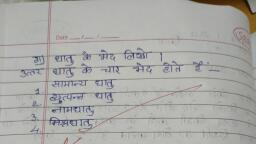 Date __/__/__
ग) धातु के भेद लिखो ।
उत्तर धातु के चार भेद होते हैं-
1 सामान्य धातु
2 व्युत्पन्न धातु
3 नामधातु
4. मिश्रधातु